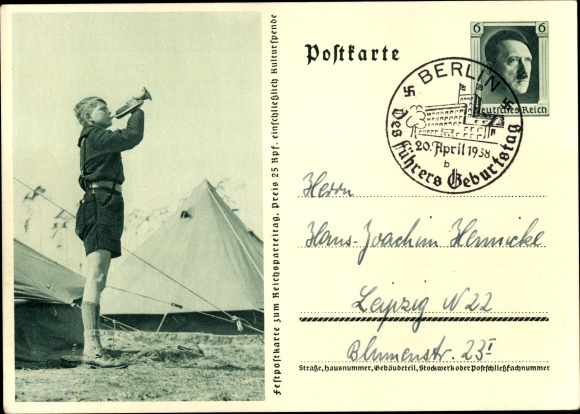 Festpostkarte zum Reichsparteitag. Preis 25 Rpf. einschließlich Kulturspende
Postkarte
6 6
Deutsches Reich
BERLIN
20. April 1938
b
Des Führers Geburtstag
Herrn
Hans-Joachim Hennicke
Leipzig N 22
Blumenstr. 23 I
Straße, Hausnummer, Gebäudeteil, Stockwerk oder Postschließfachnummer